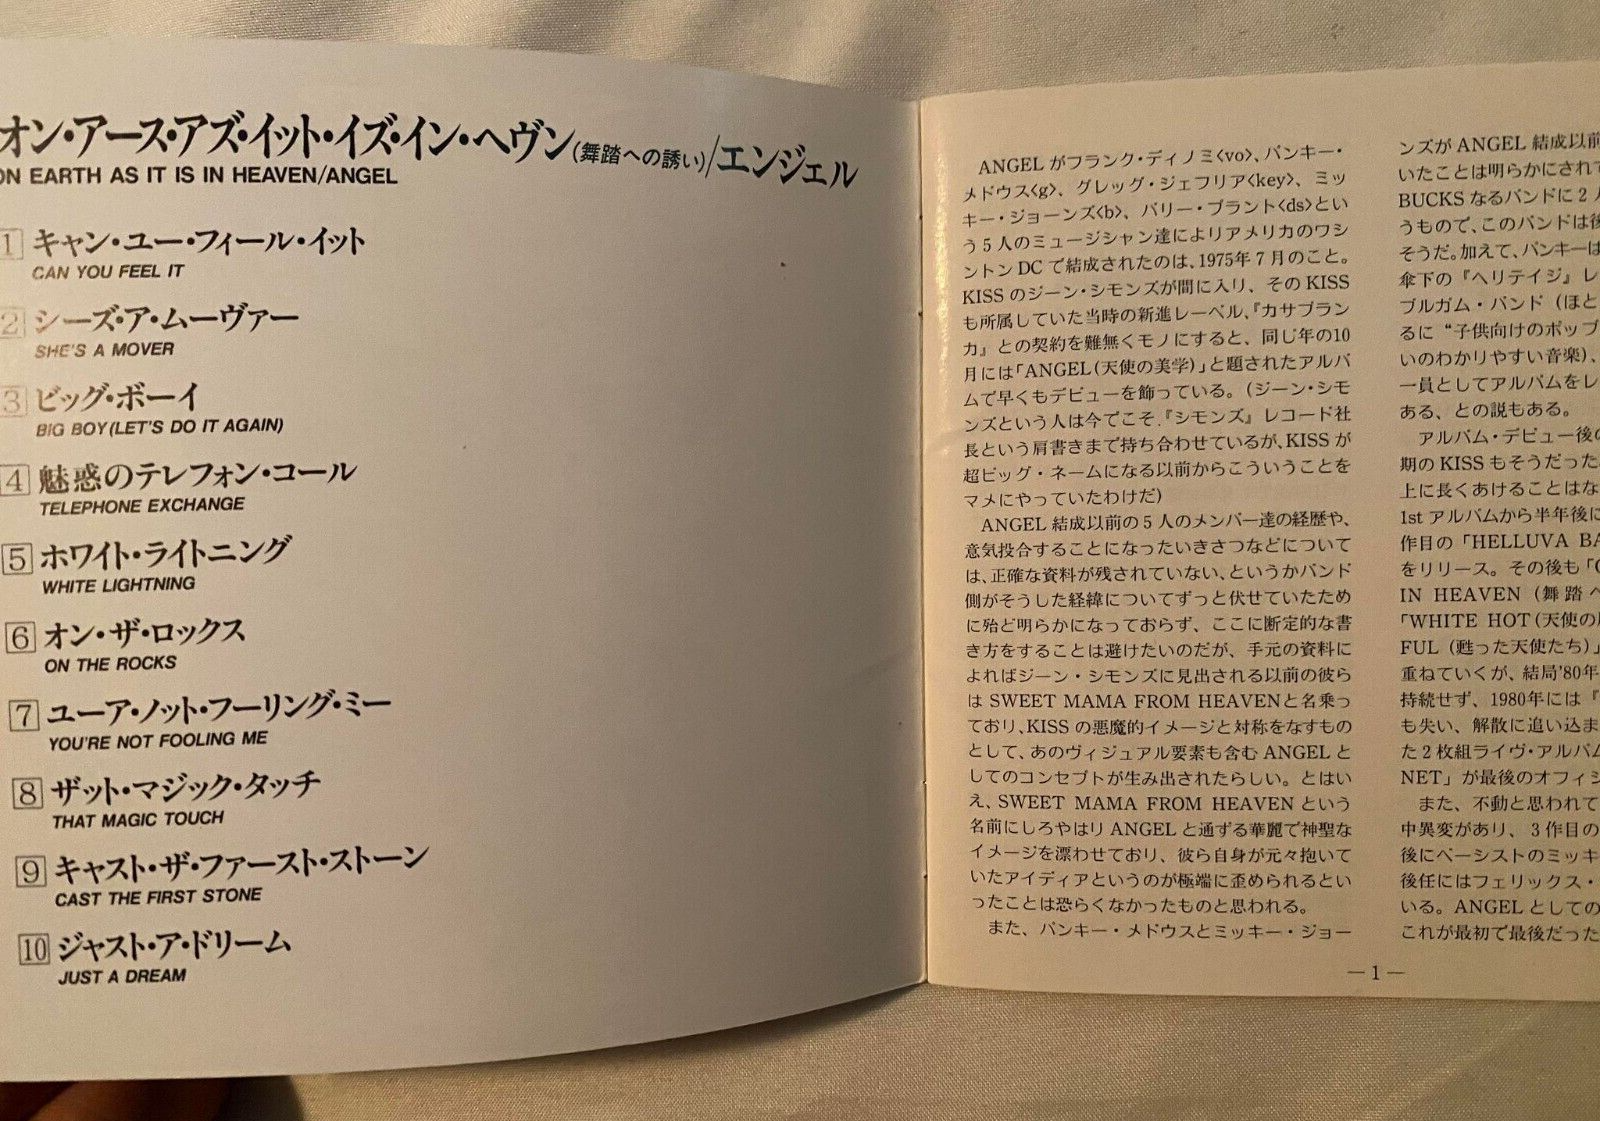 オン・アース・アズ・イット・イズ・イン・ヘヴン(舞踏への誘い)/エンジェル
ON EARTH AS IT IS IN HEAVEN/ANGEL
1 キャン・ユー・フィール・イット
CAN YOU FEEL IT
2 シーズ・ア・ムーヴァー
SHE'S A MOVER
3 ビッグ・ボーイ
BIG BOY(LET'S DO IT AGAIN)
4 魅惑のテレフォン・コール
TELEPHONE EXCHANGE
5 ホワイト・ライトニング
WHITE LIGHTNING
6 オン・ザ・ロックス
ON THE ROCKS
7 ユーア・ノット・フーリング・ミー
YOU'RE NOT FOOLING ME
8 ザット・マジック・タッチ
THAT MAGIC TOUCH
9 キャスト・ザ・ファースト・ストーン
CAST THE FIRST STONE
10 ジャスト・ア・ドリーム
JUST A DREAM
ANGEL がフランク・ディノミ<vo>、パンキー・
メドウス<g>、グレッグ・ジェフリア<key>、ミッ
キー・ジョーンズ<b>、バリー・ブラント<ds>とい
う5人のミュージシャン達によりアメリカのワシ
ントン DC で結成されたのは、1975年7月のこと。
KISS のジーン・シモンズが間に入り、その KISS
も所属していた当時の新進レーベル、『カサブラン
カ』との契約を難無くモノにすると、同じ年の10
月には「ANGEL(天使の美学)」と題されたアルバ
ムで早くもデビューを飾っている。(ジーン・シモ
ンズという人は今でこそ、『シモンズ』レコード社
長という肩書きまで持ち合わせているが、KISS が
超ビッグ・ネームになる以前からこういうことを
マメにやっていたわけだ)
ANGEL 結成以前の5人のメンバー達の経歴や、
意気投合することになったいきさつなどについて
は、正確な資料が残されていない、というかバンド
側がそうした経緯についてずっと伏せていたため
に殆ど明らかになっておらず、ここに断定的な書
き方をすることは避けたいのだが、手元の資料に
よればジーン・シモンズに見出される以前の彼ら
は SWEET MAMA FROM HEAVEN と名乗っ
ており、KISS の悪魔的イメージと対称をなすもの
として、あのヴィジュアル要素も含む ANGEL と
してのコンセプトが生み出されたらしい。とはい
え、SWEET MAMA FROM HEAVEN という
名前にしろやはり ANGEL と通ずる華麗で神聖な
イメージを漂わせており、彼ら自身が元々抱いて
いたアイディアというのが極端に歪められるとい
ったことは恐らくなかったものと思われる。
また、パンキー・メドウスとミッキー・ジョー
ンズが ANGEL 結成以前
いたことは明らかにされて
BUCKS なるバンドに2人
うもので、このバンドは後
そうだ。加えて、パンキーは
傘下の『ヘリテイジ』レ
ブルガム・バンド（ほと
るに“子供向けのポップ
いのわかりやすい音楽）、
一員としてアルバムをレ
ある、との説もある。
アルバム・デビュー後の
期の KISS もそうだった
上に長くあけることはな
1st アルバムから半年後に
作目の「HELLUVA BA
をリリース。その後も「
IN HEAVEN (舞踏へ
「WHITE HOT(天使の
FUL (甦った天使たち)」
重ねていくが、結局'80年
持続せず、1980年には『
も失い、解散に追い込ま
た2枚組ライヴ・アルバム
NET」が最後のオフィシ
また、不動と思われて
中異変があり、3作目の
後にベーシストのミッキ
後任にはフェリックス・
いる。ANGEL としての
これが最初で最後だった
— 1 —